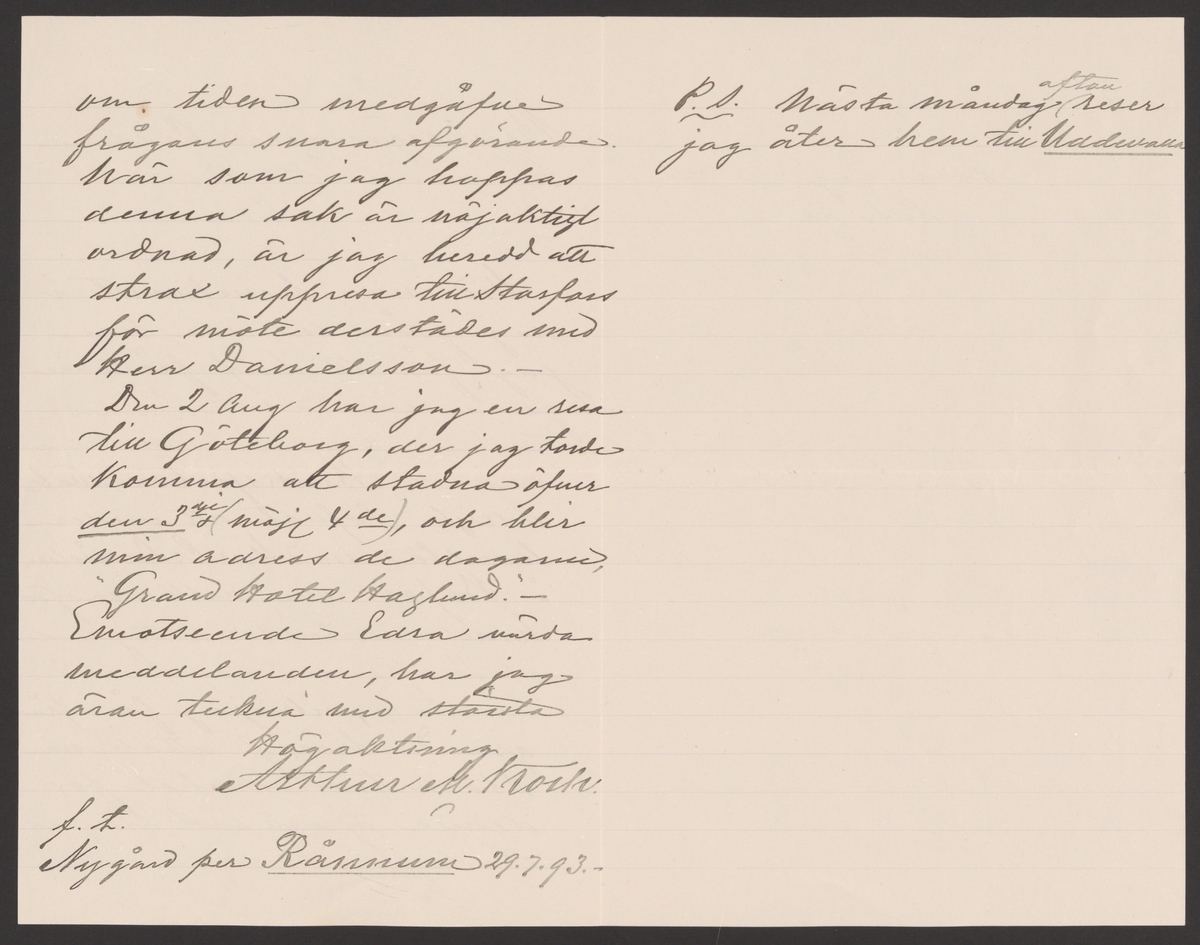 om tiden medgåfve
frågans snara afgörande.
När som jag hoppas
denna sak är nöjaktigt
ordnad, är jag beredd att
strax uppresa till Storfors
för möte derstädes med
Herr Danielsson. —
Den 2 Aug har jag en resa
till Göteborg, der jag torde
komma att stadna öfver
den 3dje (möjl 4de), och blir
min adress de dagarne,
"Grand Hotel Haglund". —
Emotseende Edra värda
meddelanden, har jag
äran teckna med största
Högaktning
Arthur M. Koch.
f. t.
Nygård per Råssnum 29.7.93. —
P.S. Nästa måndag afton reser
jag åter hem till Uddevalla